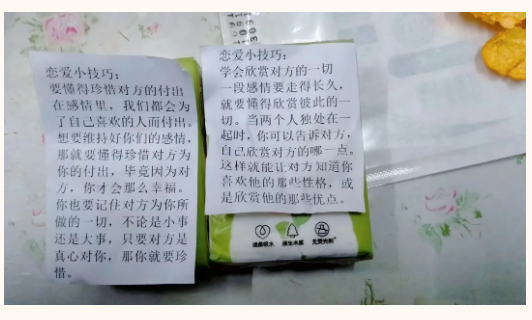 恋爱小技巧：
要懂得珍惜对方的付出
在感情里，我们都会为
了自己喜欢的人而付出。
想要维持好你们的感情，
那就要懂得珍惜对方为
你的付出，毕竟因为对
方，你才会那么幸福。
你也要记住对方为你所
做的一切，不论是小事
还是大事，只要对方是
真心对你，那你就要珍
惜。
恋爱小技巧：
学会欣赏对方的一切
一段感情要走得长久，
就要懂得欣赏彼此的一
切。当两个人独处在一
起时，你可以告诉对方，
自己欣赏对方的哪一点。
这样就能让对方知道你
喜欢他的那些性格，或
是欣赏他的那些优点。
温柔吸水 原生木浆 无荧光剂